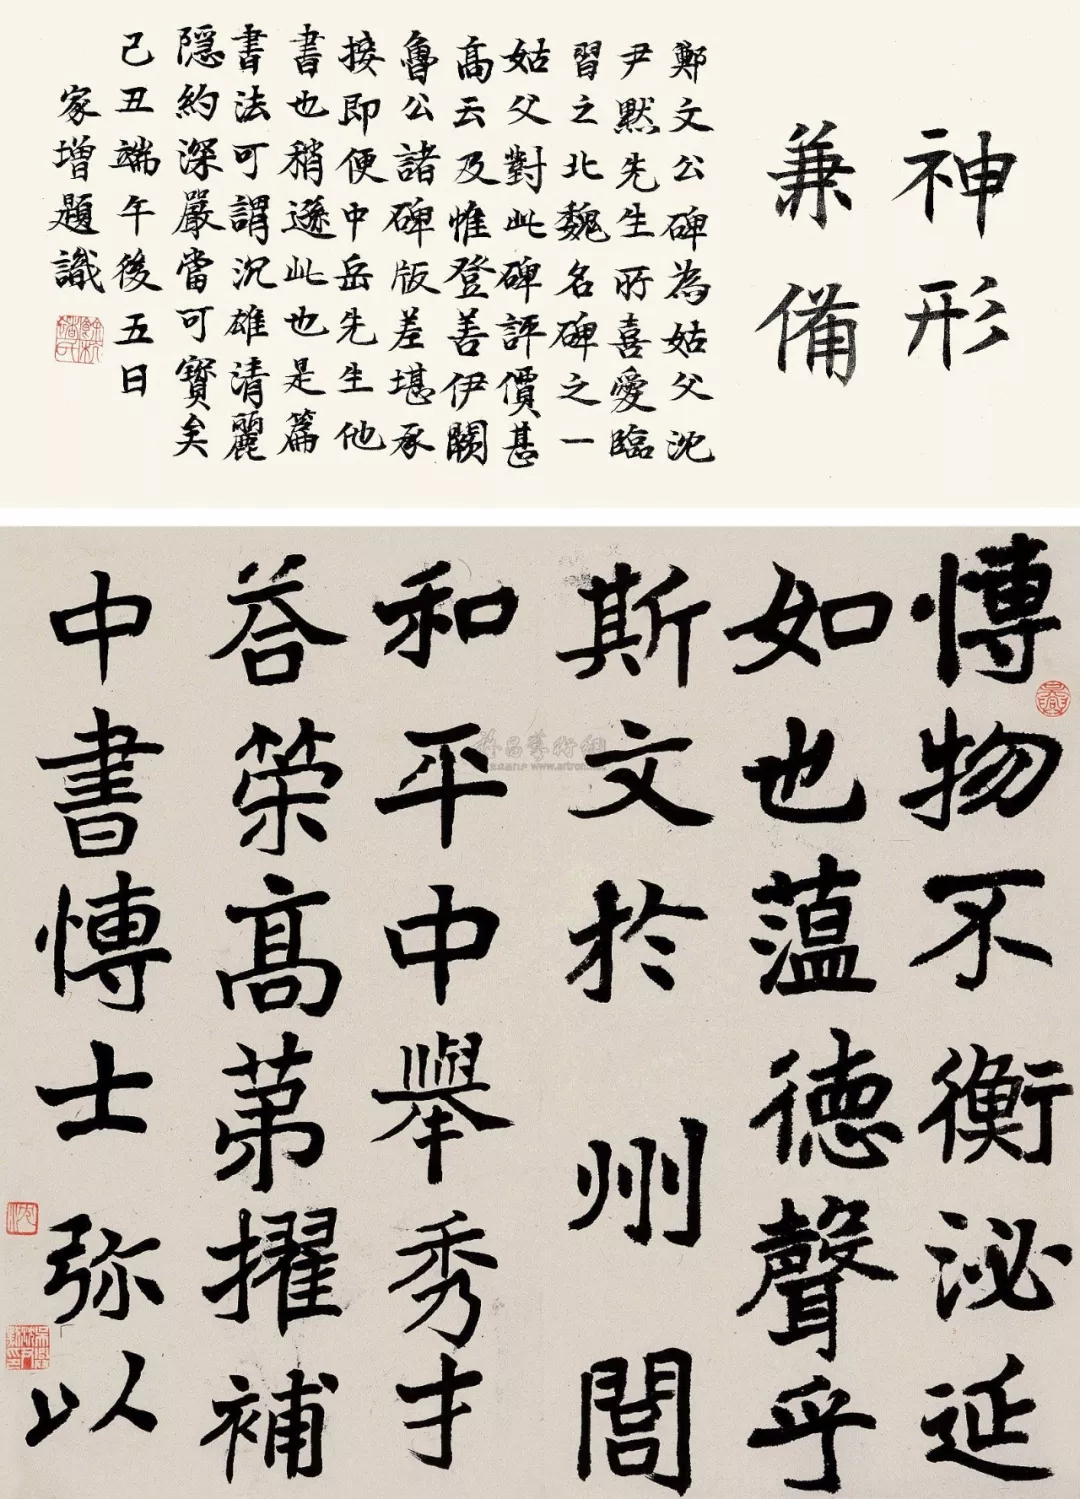 神形
兼備
鄭文公碑為姑父沈
尹默先生所喜愛臨
習之北魏名碑之一
姑父對此碑評價甚
高云及惟登善伊闕
魯公諸碑版差堪承
接即便中岳先生他
書也稍遜此也是篇
書法可謂沉雄清麗
隱約深嚴當可寶矣
己丑端午後五日
家增題識
博物不衡泌延
如也薀德聲乎
斯文於州閭
和平中舉秀才
荅策高第擢補
中書博士弥以
www.artron.net